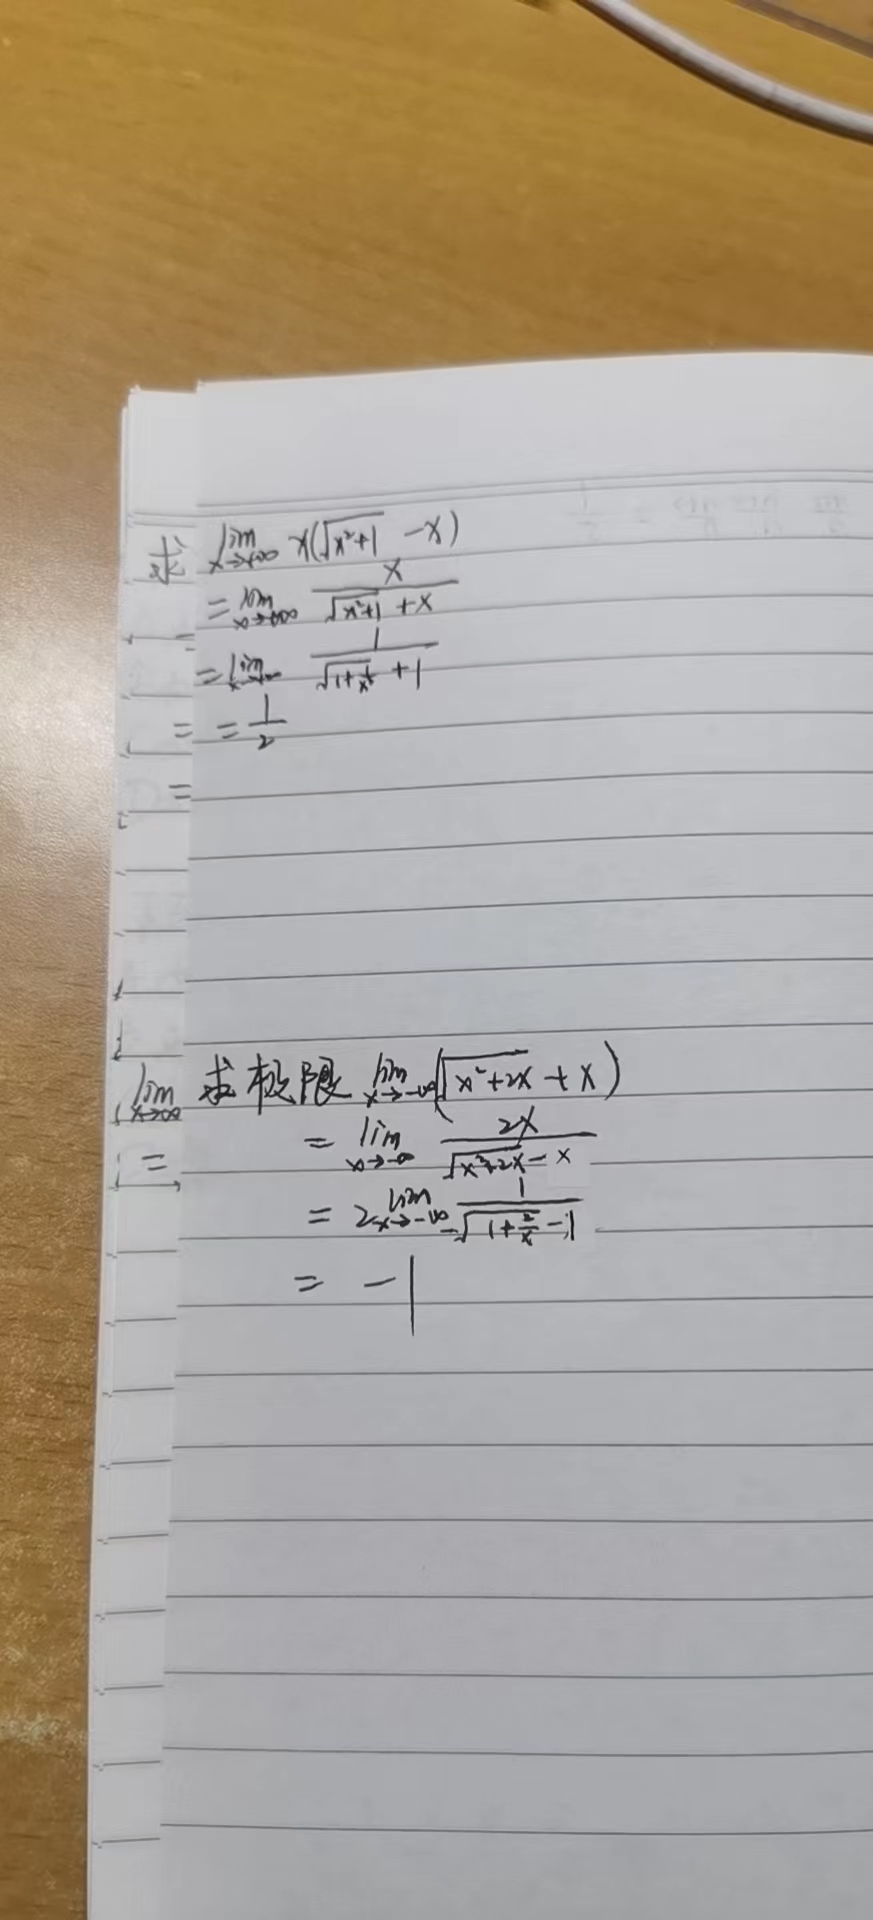 求 lim x→+∞ x(√(x²+1) -x)
= lim x→+∞ x/(√(x²+1) +x)
= lim x→+∞ 1/(√(1+1/x²) +1)
= = 1/2
=
lim x→∞ 求极限 lim x→-∞ (√(x²+2x) +x)
= = lim x→-∞ 2x/(√(x²+2x) -x)
= 2 lim x→-∞ 1/(-√(1+2/x) -1)
= -1